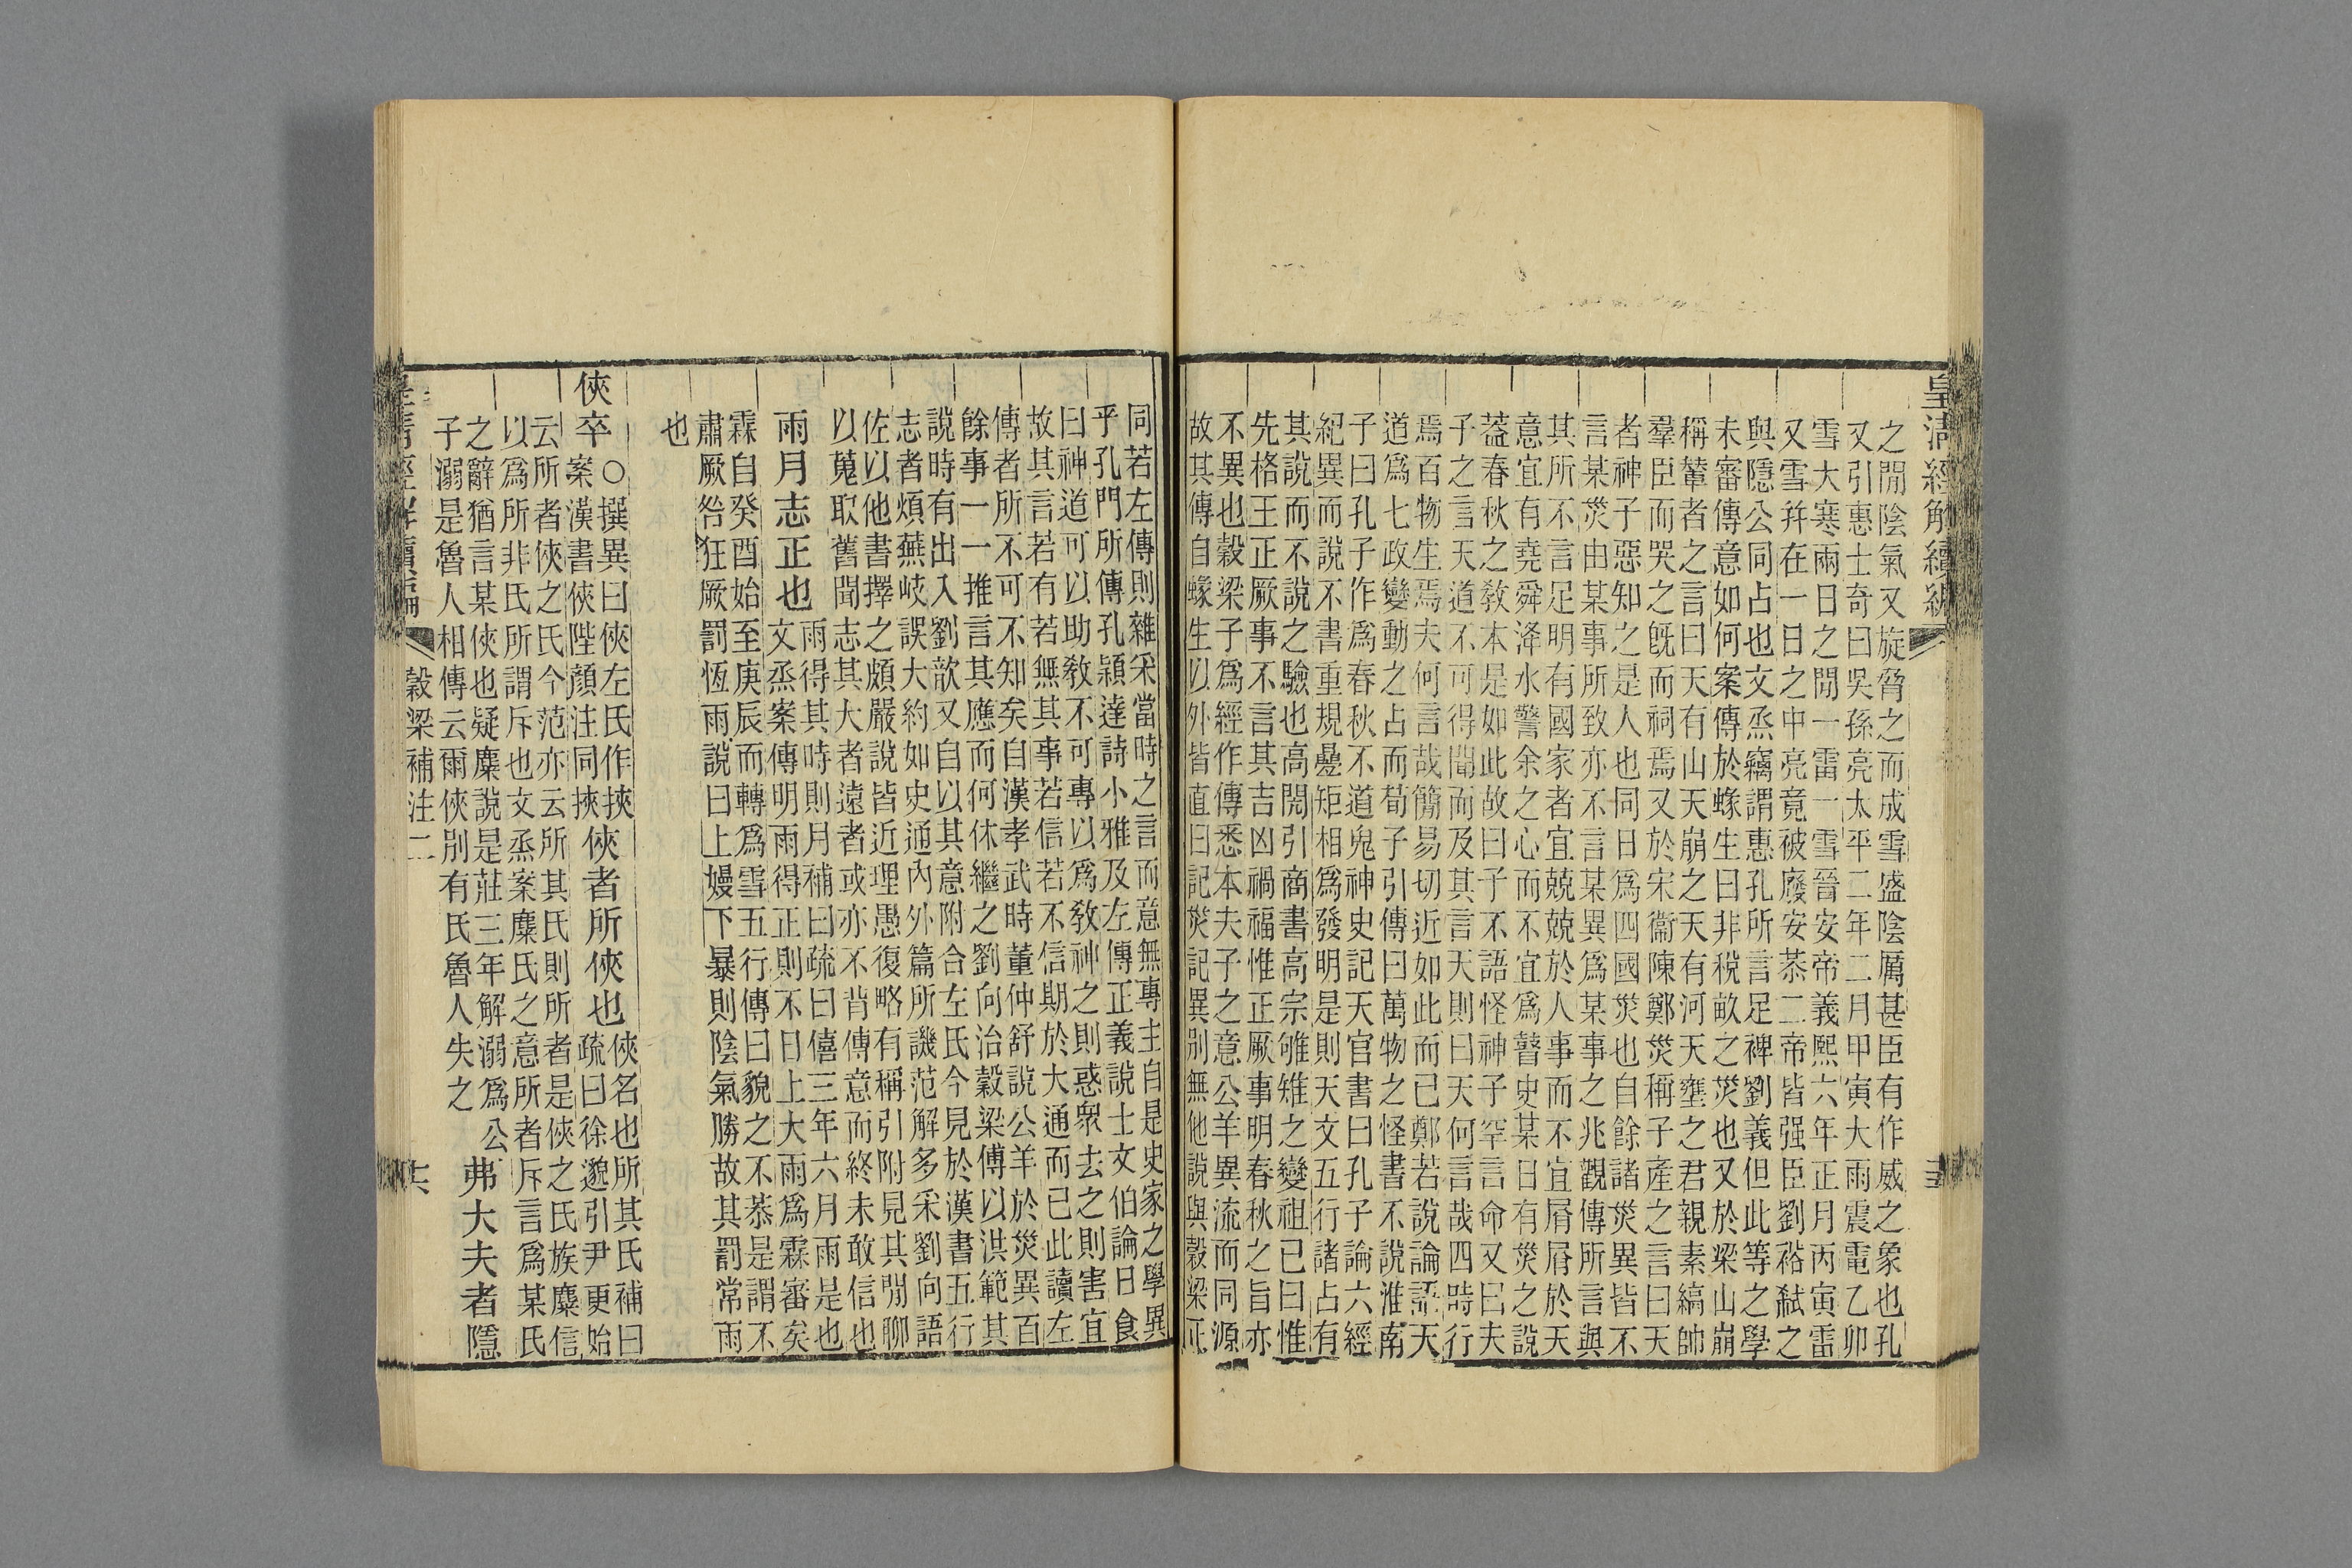 皇清經解續編
之閒陰氣又旋脅之而成雪盛陰厲甚臣有作威之象也孔
又引惠士奇曰吳孫亮太平二年二月甲寅大雨震電乙卯
雪大寒雨日之閒一雷一雪晉安帝義熙六年正月丙寅雷
又雪幷在一日之中亮竟被廢安恭二帝皆强臣劉裕弒之
與隱公同占也文烝竊謂惠孔所言足裨劉義但此等之學
未審傳意如何案傳於蝝生曰非稅畝之災也又於梁山崩
稱輦者之言曰天有山天崩之天有河天壅之君親素縞帥
羣臣而哭之既而祠焉又於宋衞陳鄭災稱子產之言曰天
者神子惡知之是人也同日爲四國災也自餘諸災異皆不
言某災由某事所致亦不言某異爲某事之兆觀傳所言與
其所不言足明有國家者宜兢兢於人事而不宜屑屑於天
意宜有堯舜洚水警余之心而不宜爲瞽史某日有災之說
葢春秋之敎本是如此故曰子不語怪神子罕言命又曰夫
子之言天道不可得聞而及其言天則曰天何言哉四時行
焉百物生焉夫何言哉簡易切近如此而已鄭若說論語天
道爲七政變動之占而荀子引傳曰萬物之怪書不說淮南
子曰孔子作爲春秋不道鬼神史記天官書曰孔子論六經
紀異而說不書重規疊矩相爲發明是則天文五行諸占有
其說而不說之驗也高閌引商書高宗雊雉之變祖已曰惟
先格王正厥事不言其吉凶禍福惟正厥事明春秋之旨亦
不異也穀梁子爲經作傳悉本夫子之意公羊異流而同源
故其傳自蝝生以外皆直曰記災記異別無他說與穀梁正
同若左傳則雜采當時之言而意無專主自是史家之學異
乎孔門所傳孔穎達詩小雅及左傳正義說士文伯論日食
曰神道可以助敎不可專以爲敎神之則惑衆去之則害宜
故其言若有若無其事若信若不信期於大通而已此讀左
傳者所不可不知矣自漢孝武時董仲舒說公羊於災異百
餘事一一推言其應而何休繼之劉向治穀梁傳以洪範其
說時有出入劉歆又自以其意附合左氏今見於漢書五行
志者煩蕪岐誤大約如史通內外篇所譏范解多采劉向語
佐以他書擇之頗嚴說皆近理愚復略有稱引附見其閒聊
以蒐取舊聞志其大者遠者或亦不背傳意而終未敢信也
雨月志正也雨得其時則月補曰疏曰僖三年六月雨是也
文烝案傳明雨得正則不日上大雨爲霖審矣
霖自癸酉始至庚辰而轉爲雪五行傳曰貌之不恭是謂不
肅厥咎狂厥罰恆雨說曰上嫚下暴則陰氣勝故其罰常雨
也
俠卒○撰異曰俠左氏作挾
案漢書俠陛顏注同挾俠者所俠也俠名也所其氏補曰
疏曰徐邈引尹更始
云所者俠之氏今范亦云所其氏則所者是俠之氏族麋信
以爲所非氏所謂斥也文烝案麋氏之意所者斥言爲某氏
之辭猶言某俠也疑麋說是莊三年解溺爲公
子溺是魯人相傳云爾俠別有氏魯人失之弗大夫者隱
皇清經解續編
穀梁補注二